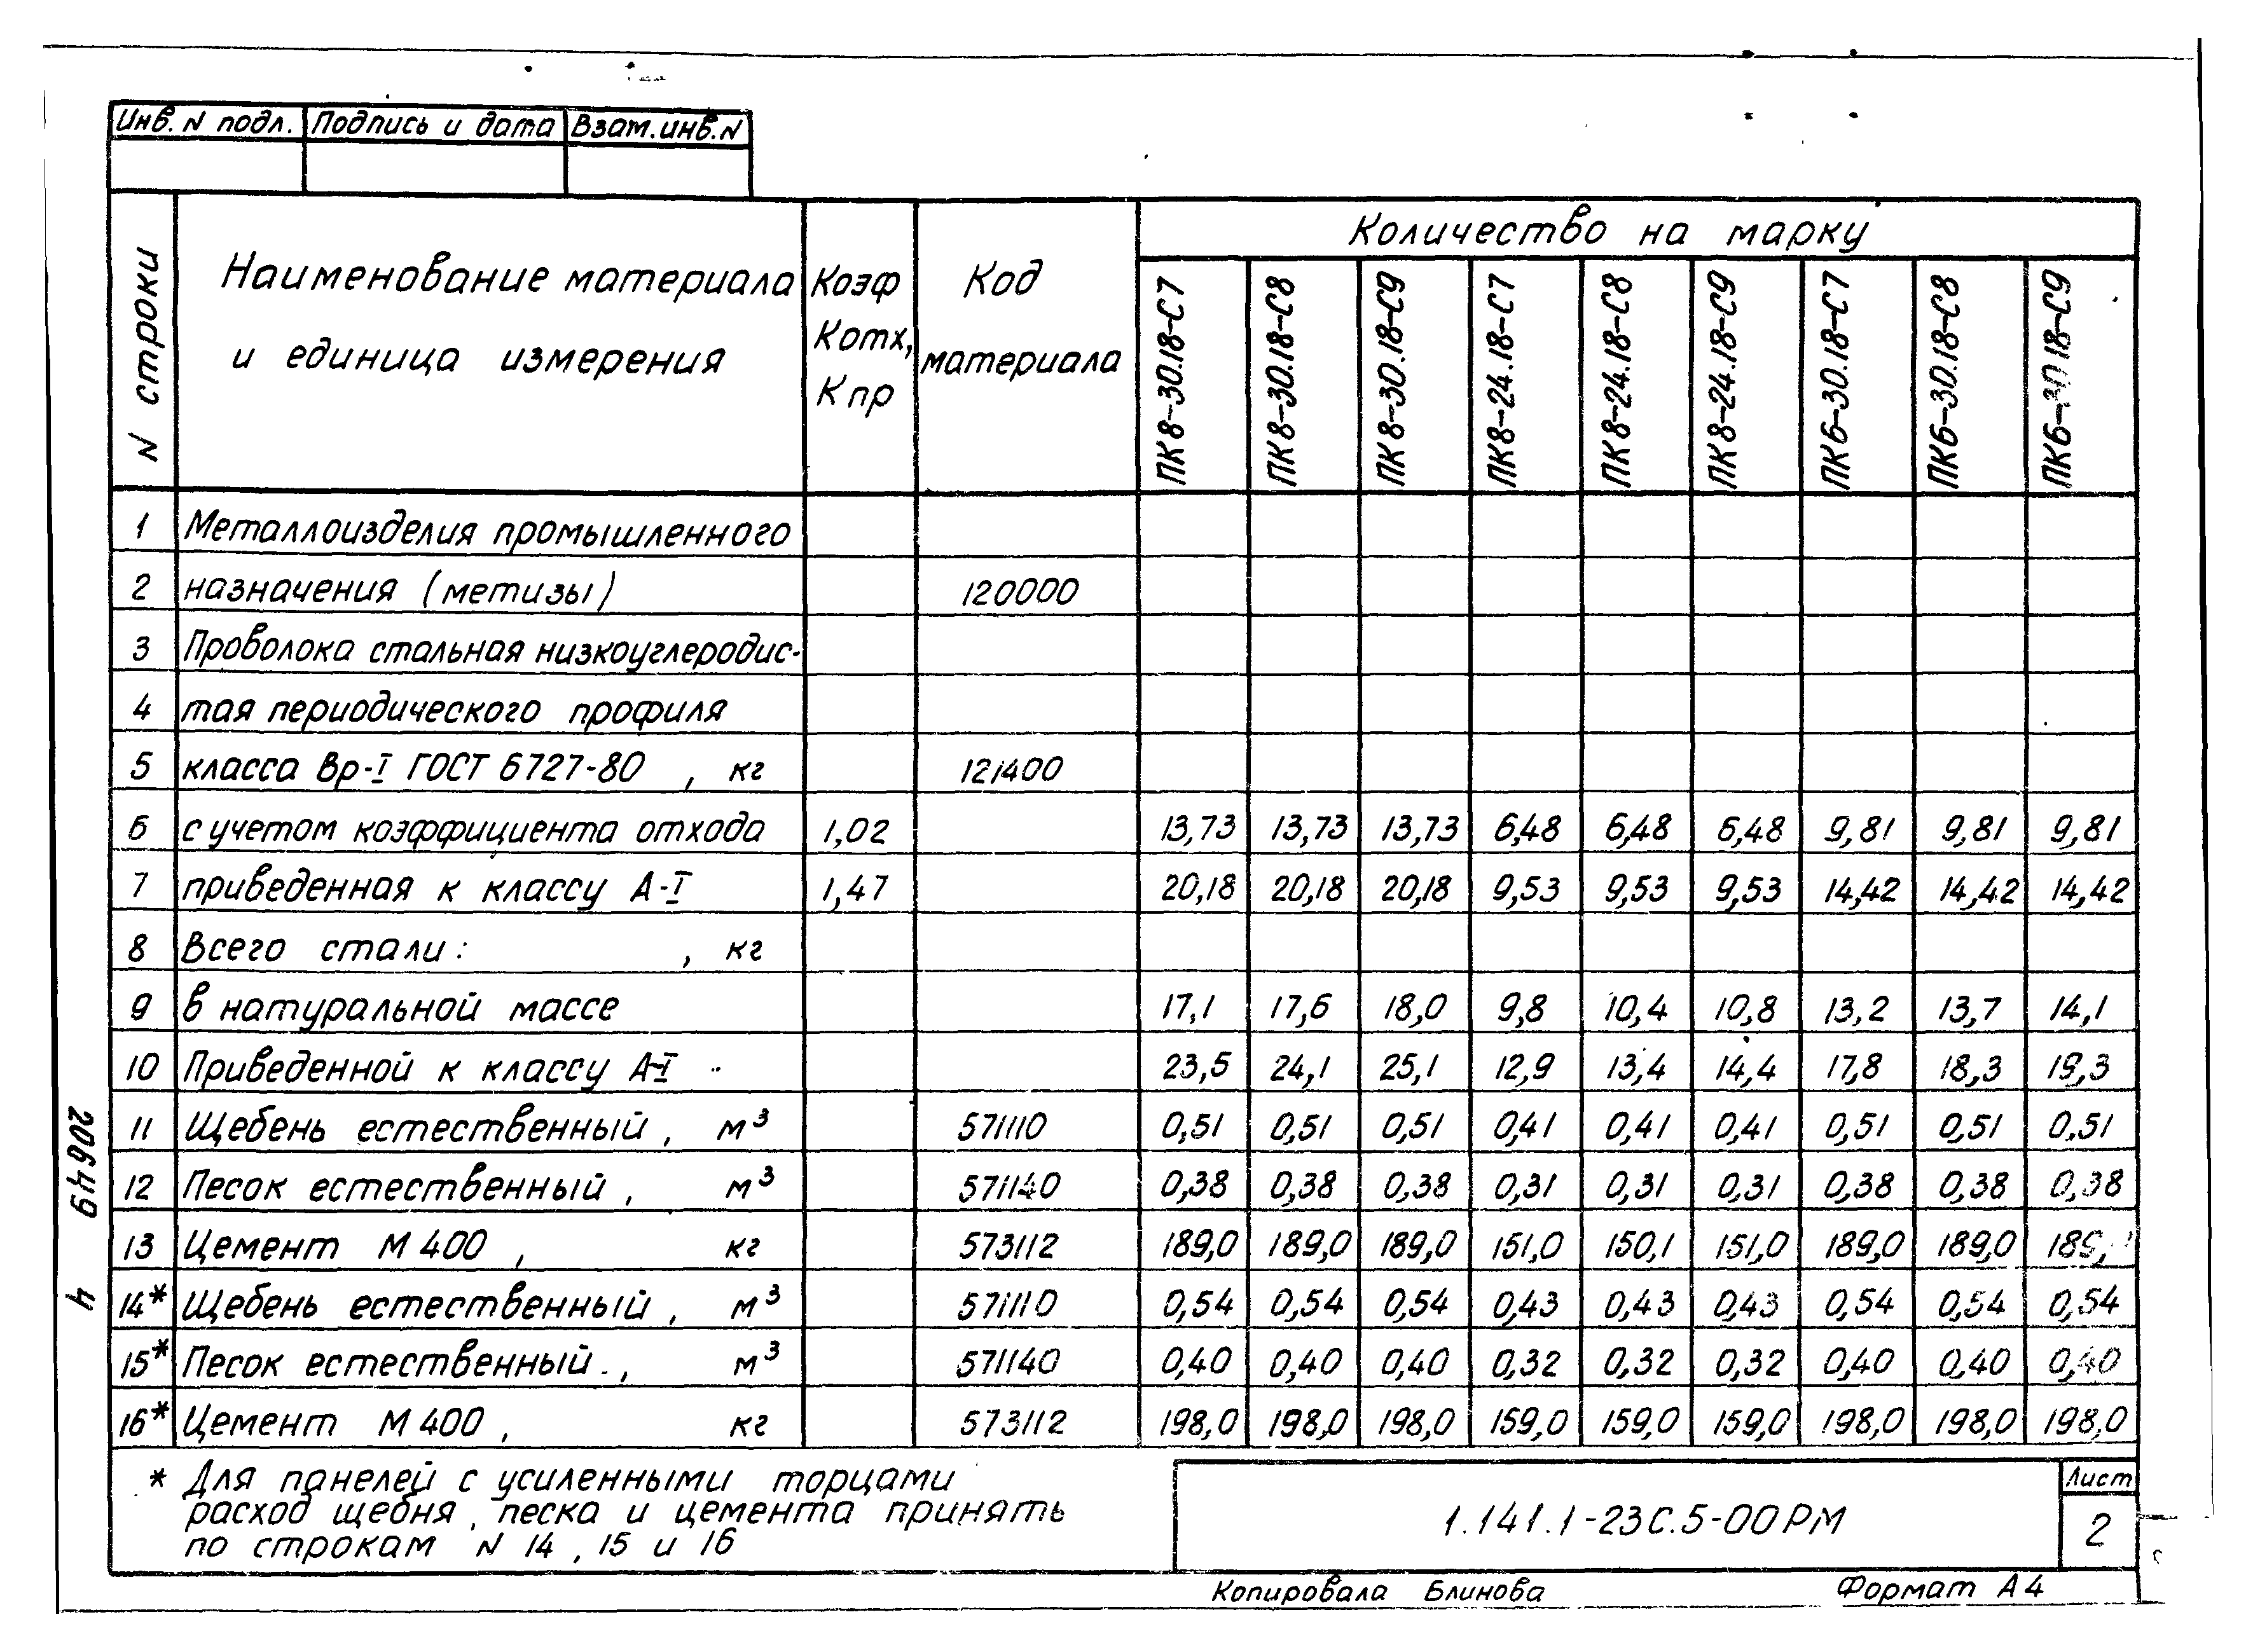 Инв. N подл. Подпись и дата Взам. инв. N
N строки Наименование материала и единица измерения Коэф Котх, Кпр Код материала Количество на марку
ПК8-30.18-С7 ПК8-30.18-С8 ПК8-30.18-С9 ПК8-24.18-С7 ПК8-24.18-С8 ПК8-24.18-С9 ПК6-30.18-С7 ПК6-30.18-С8 ПК6-30.18-С9
1 Металлоизделия промышленного
2 назначения (метизы) 120000
3 Проволока стальная низкоуглеродис-
4 тая периодического профиля
5 класса Вр-I ГОСТ 6727-80 , кг 121400
6 с учетом коэффициента отхода 1,02 13,73 13,73 13,73 6,48 6,48 6,48 9,81 9,81 9,81
7 приведенная к классу А-I 1,47 20,18 20,18 20,18 9,53 9,53 9,53 14,42 14,42 14,42
8 Всего стали: , кг
9 в натуральной массе 17,1 17,6 18,0 9,8 10,4 10,8 13,2 13,7 14,1
10 Приведенной к классу А-I 23,5 24,1 25,1 12,9 13,4 14,4 17,8 18,3 19,3
11 Щебень естественный, м³ 571110 0,51 0,51 0,51 0,41 0,41 0,41 0,51 0,51 0,51
12 Песок естественный, м³ 571140 0,38 0,38 0,38 0,31 0,31 0,31 0,38 0,38 0,38
13 Цемент М 400 , кг 573112 189,0 189,0 189,0 151,0 150,1 151,0 189,0 189,0
14* Щебень естественный, м³ 571110 0,54 0,54 0,54 0,43 0,43 0,43 0,54 0,54 0,54
15* Песок естественный., м³ 571140 0,40 0,40 0,40 0,32 0,32 0,32 0,40 0,40 0,40
16* Цемент М 400 , кг 573112 198,0 198,0 198,0 159,0 159,0 159,0 198,0 198,0 198,0
* Для панелей с усиленными торцами
расход щебня, песка и цемента принять
по строкам N 14, 15 и 16
1.141.1-23С.5-00РМ
Лист
2
Копировала Блинова Формат А4
20649 4